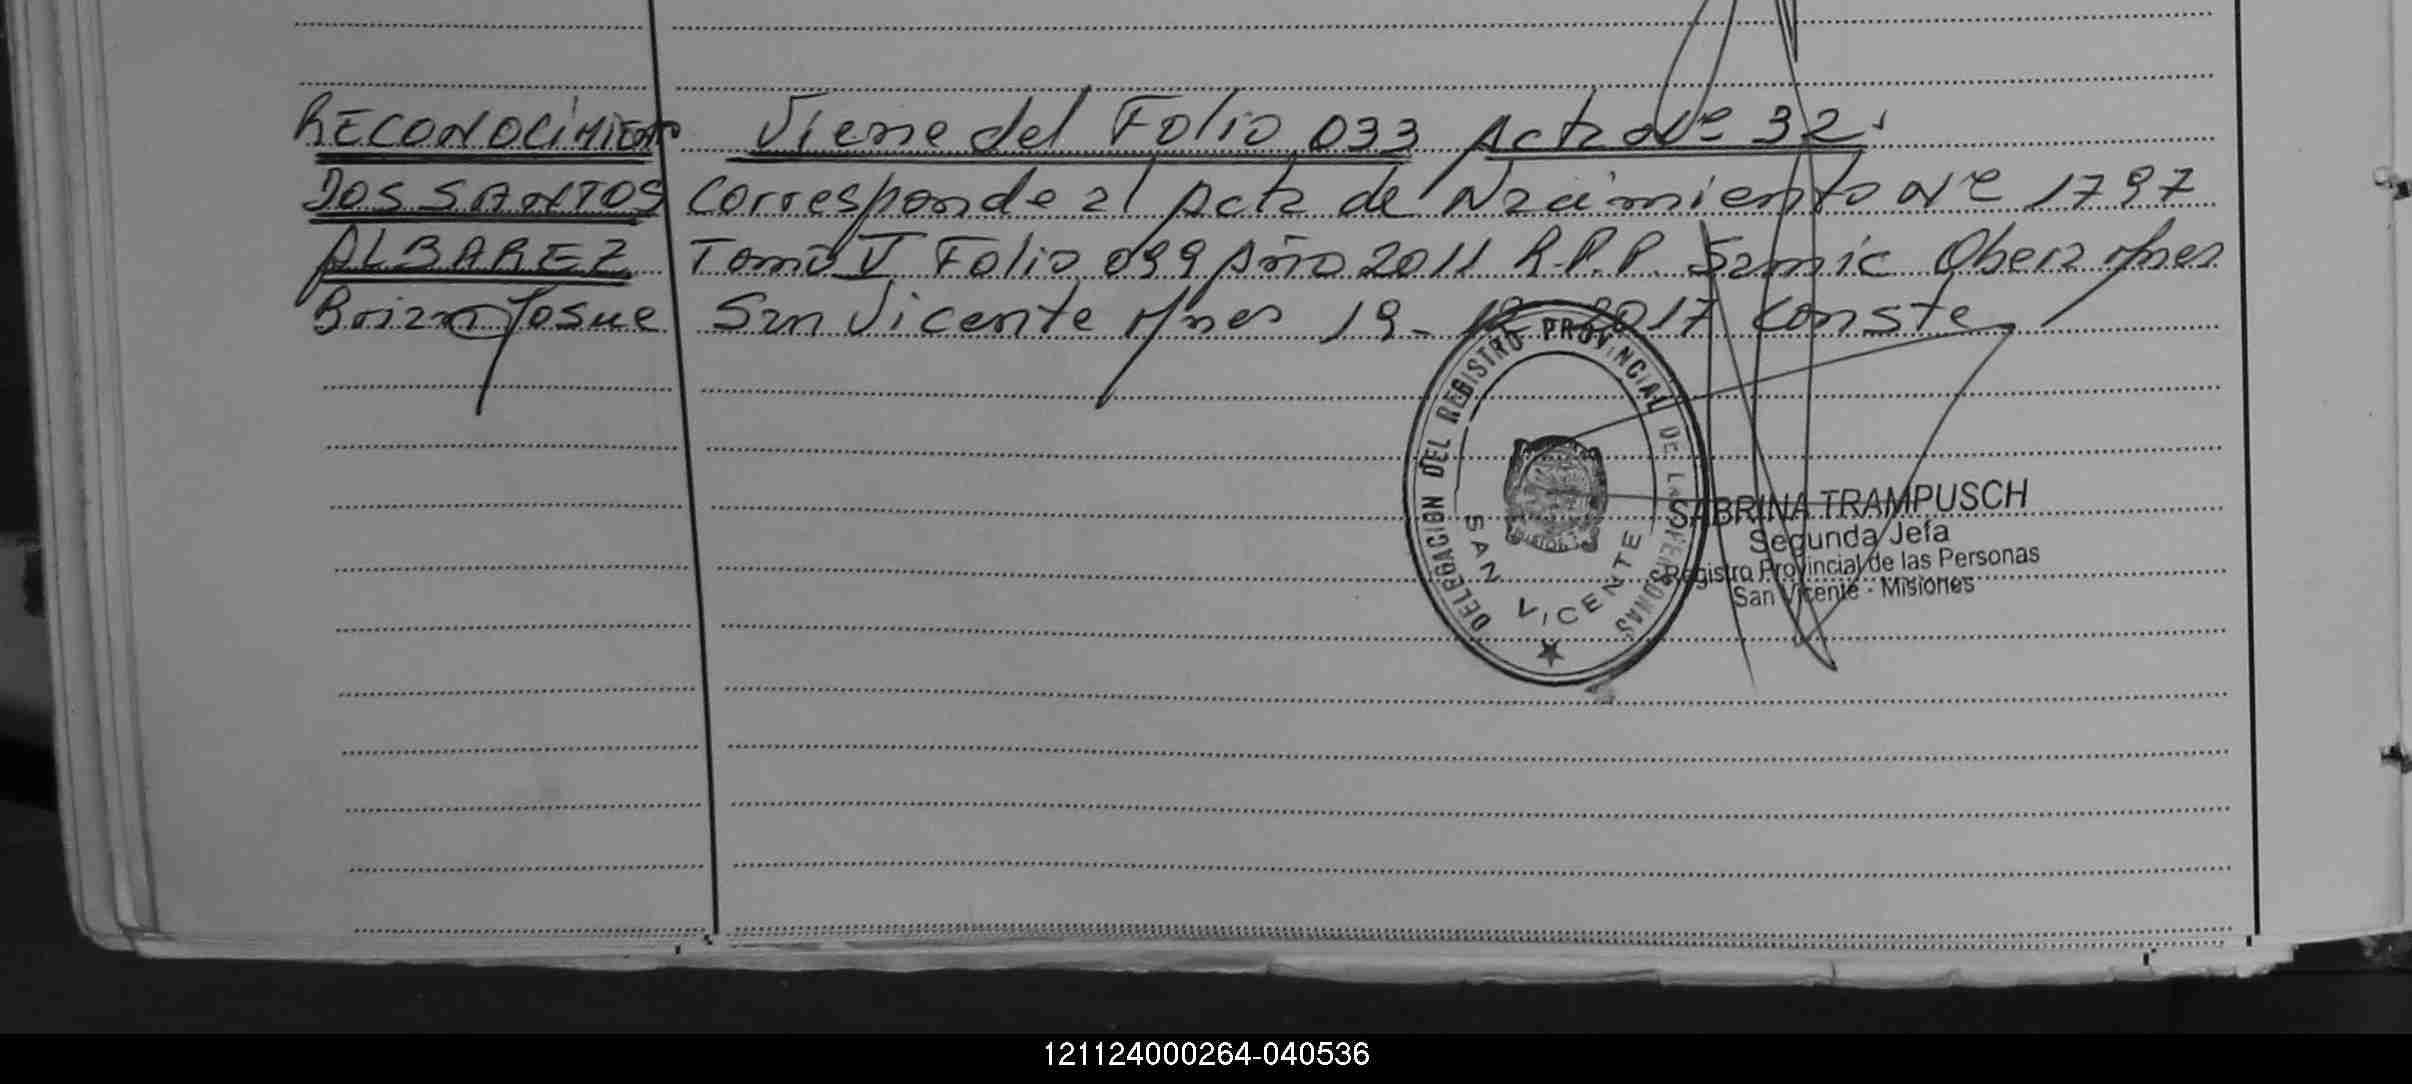 RECONOCIMIENTO Viene del Folio 033 Acta Nº 32.
DOS SANTOS Corresponde al Acta de Nacimiento Nº 1797
ALBAREZ Tomo V Folio 099 Año 2011 R.P.P. Samic Obera Mnes
Brian Josue San Vicente Mnes 19- 2017 Conste
DELEGACION DEL REGISTRO PROVINCIAL DE LAS PERSONAS
SAN VICENTE
SABRINA TRAMPUSCH
Segunda Jefa
Registro Provincial de las Personas
San Vicente - Misiones
121124000264-040536